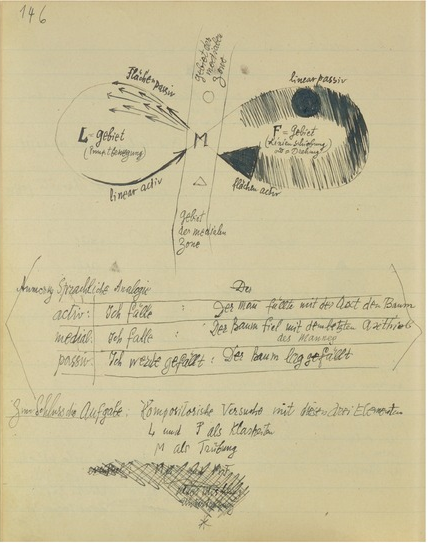 146
gebiet der
medialen
Zone
Flächen passiv
linear passiv
L = gebiet
(punktbewegung)
M
F = gebiet
(Linien schiebung
Drehung)
linear activ
flächen activ
gebiet
der medialen
Zone
Sprachliche Analogie
activ: Ich fälle : Der Man fällte mit der Axt den Baum
medial: ich falle : Der Baum fiel mit dem letzten Axthieb
des Mannes
passiv: Ich werde gefällt : Der Baum lag gefällt
Zum Schluss die Aufgabe: Kompositorische Versuche mit diesen drei Elementen
L und F als Klarheiten
M als Trübung